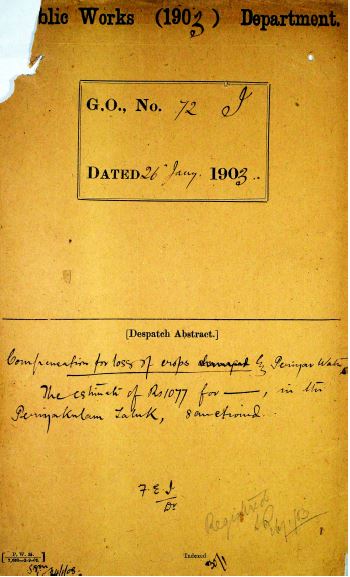 blic Works (1903) Department.
G.O., No. 72 I
DATED 26 Jany. 1903.
[Despatch Abstract.]
Compensation for loss of crops damaged by Periyar Water
The estimate of Rs 1077 for ——, in the
Periyakulam Taluk, sanctioned.
F. E. I
Registered
Indexed
P. W. M.